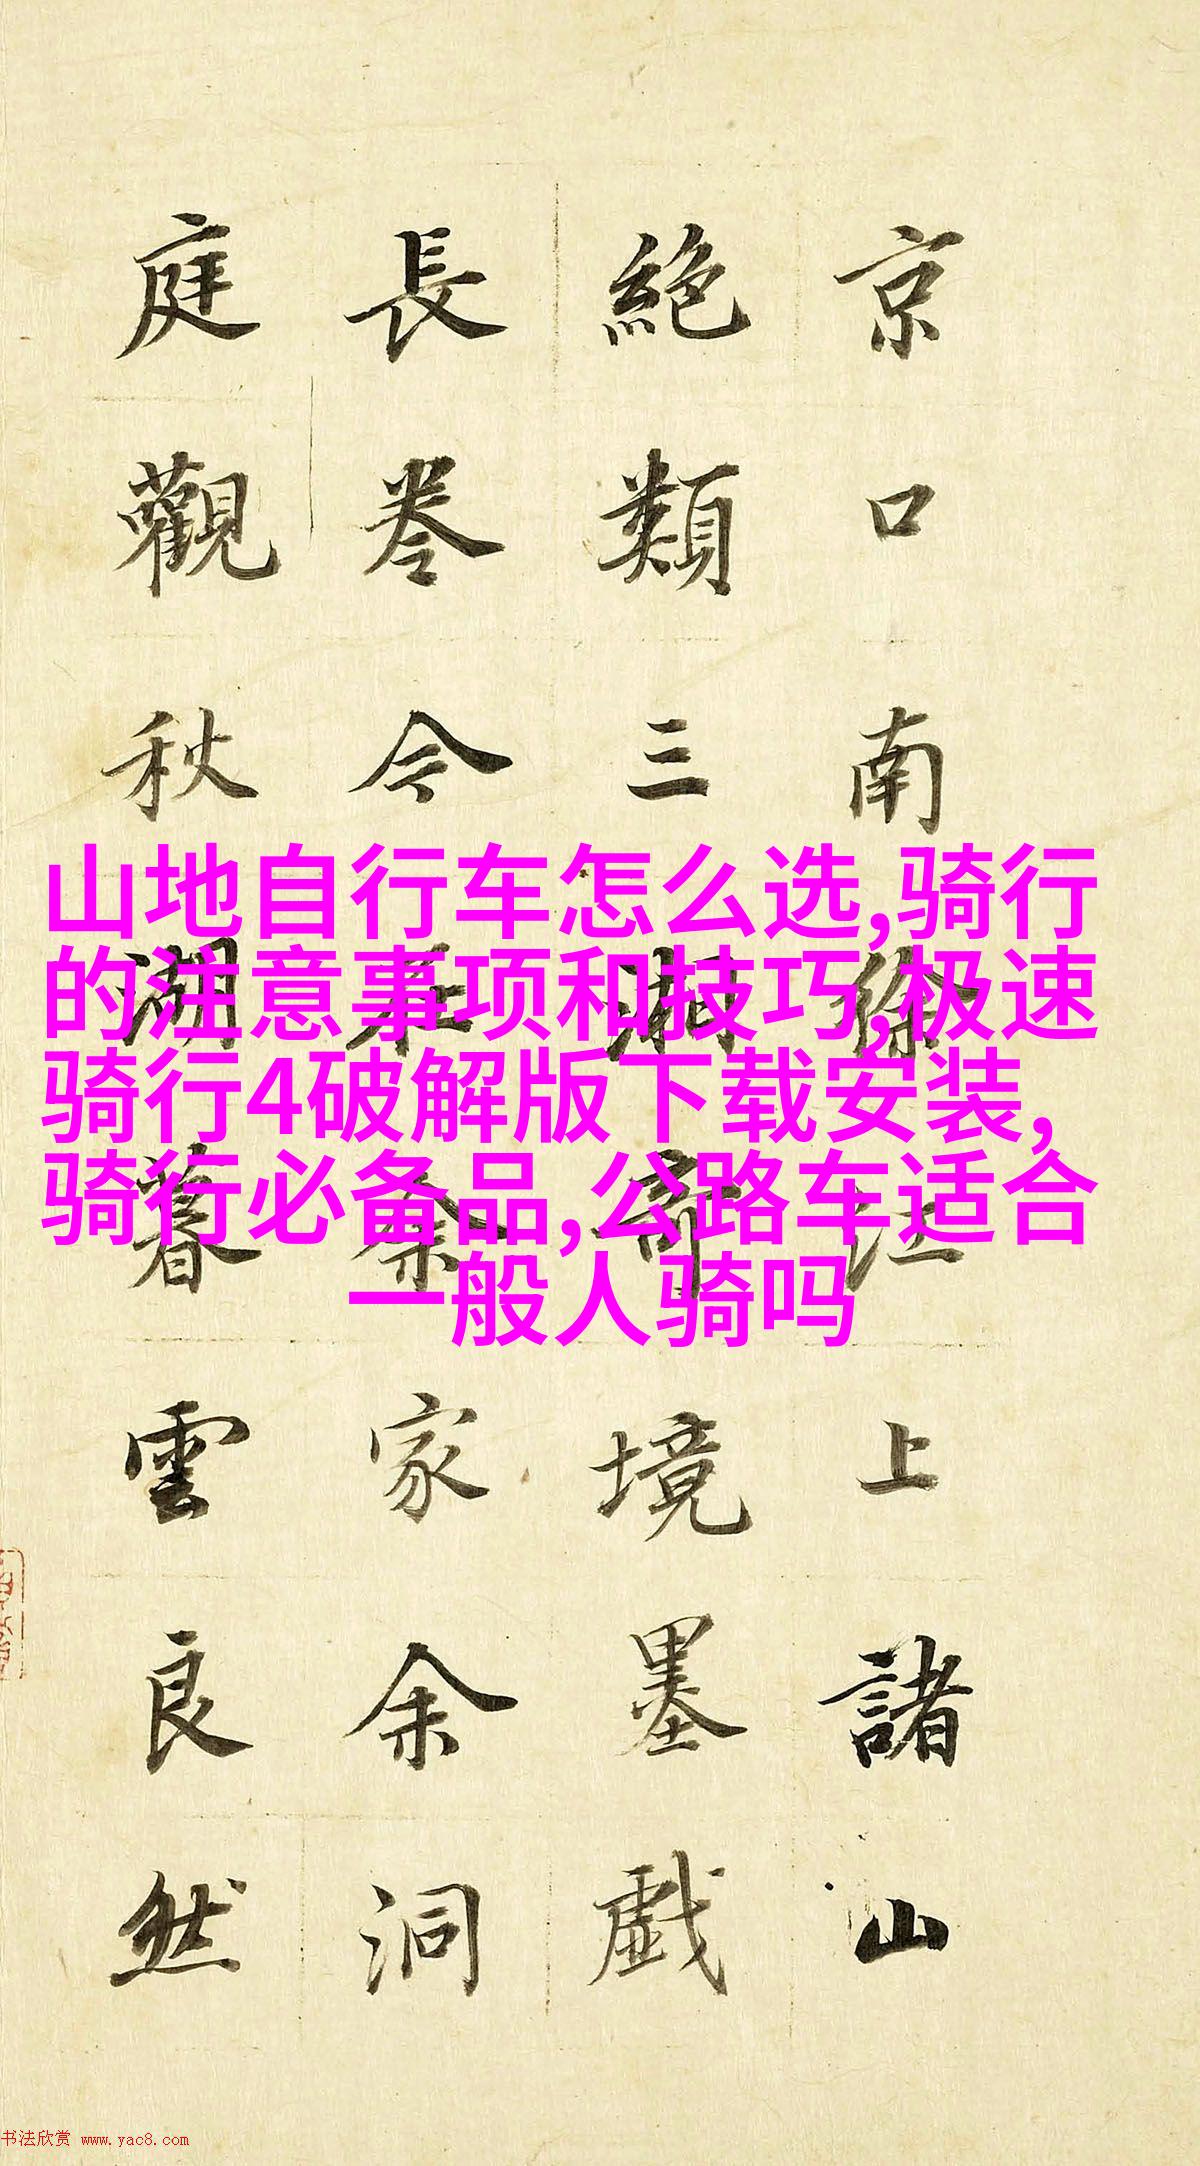 京口南徐江上諸山
絶類三湘奇境墨戲
長卷今在余家余洞
庭觀秋湖暮雲良然
山地自行车怎么选,骑行
的注意事项和技巧,极速
骑行4破解版下载安装,
骑行必备品,公路车适合
一般人骑吗
书法欣赏 www.yac8.com